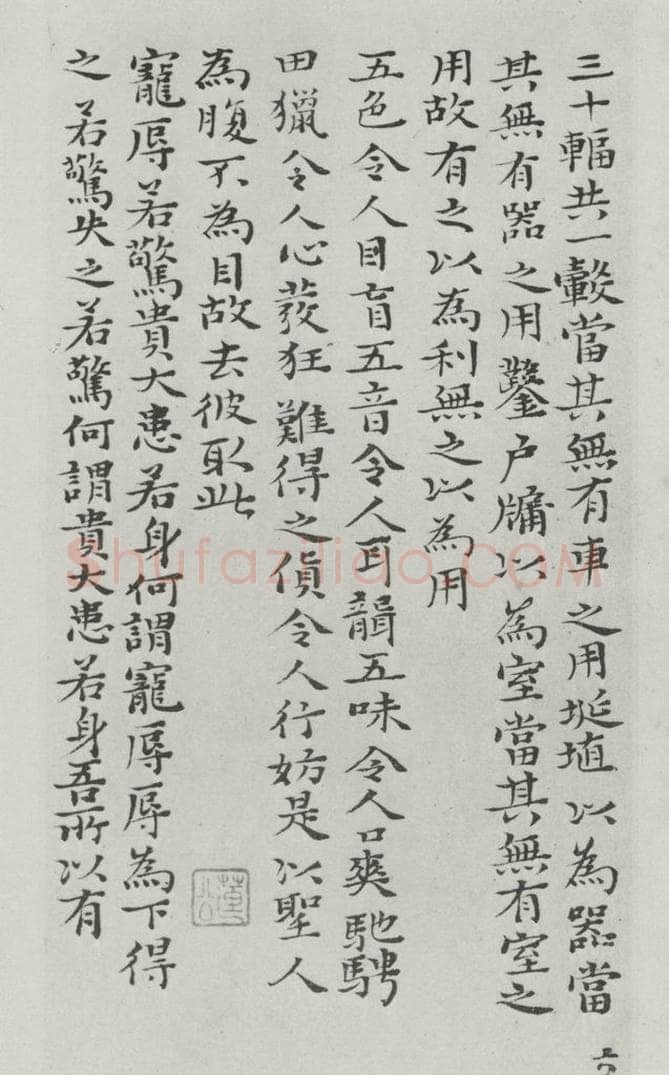 三十輻共一轂當其無有車之用埏埴以為器當
其無有器之用鑿户牖以為室當其無有室之
用故有之以為利無之以為用
五色令人目盲五音令人耳聾五味令人口爽馳騁
田獵令人心發狂難得之貨令人行妨是以聖人
為腹不為目故去彼取此
寵辱若驚貴大患若身何謂寵辱辱為下得
之若驚失之若驚何謂貴大患若身吾所以有
Shufaziliao.COM